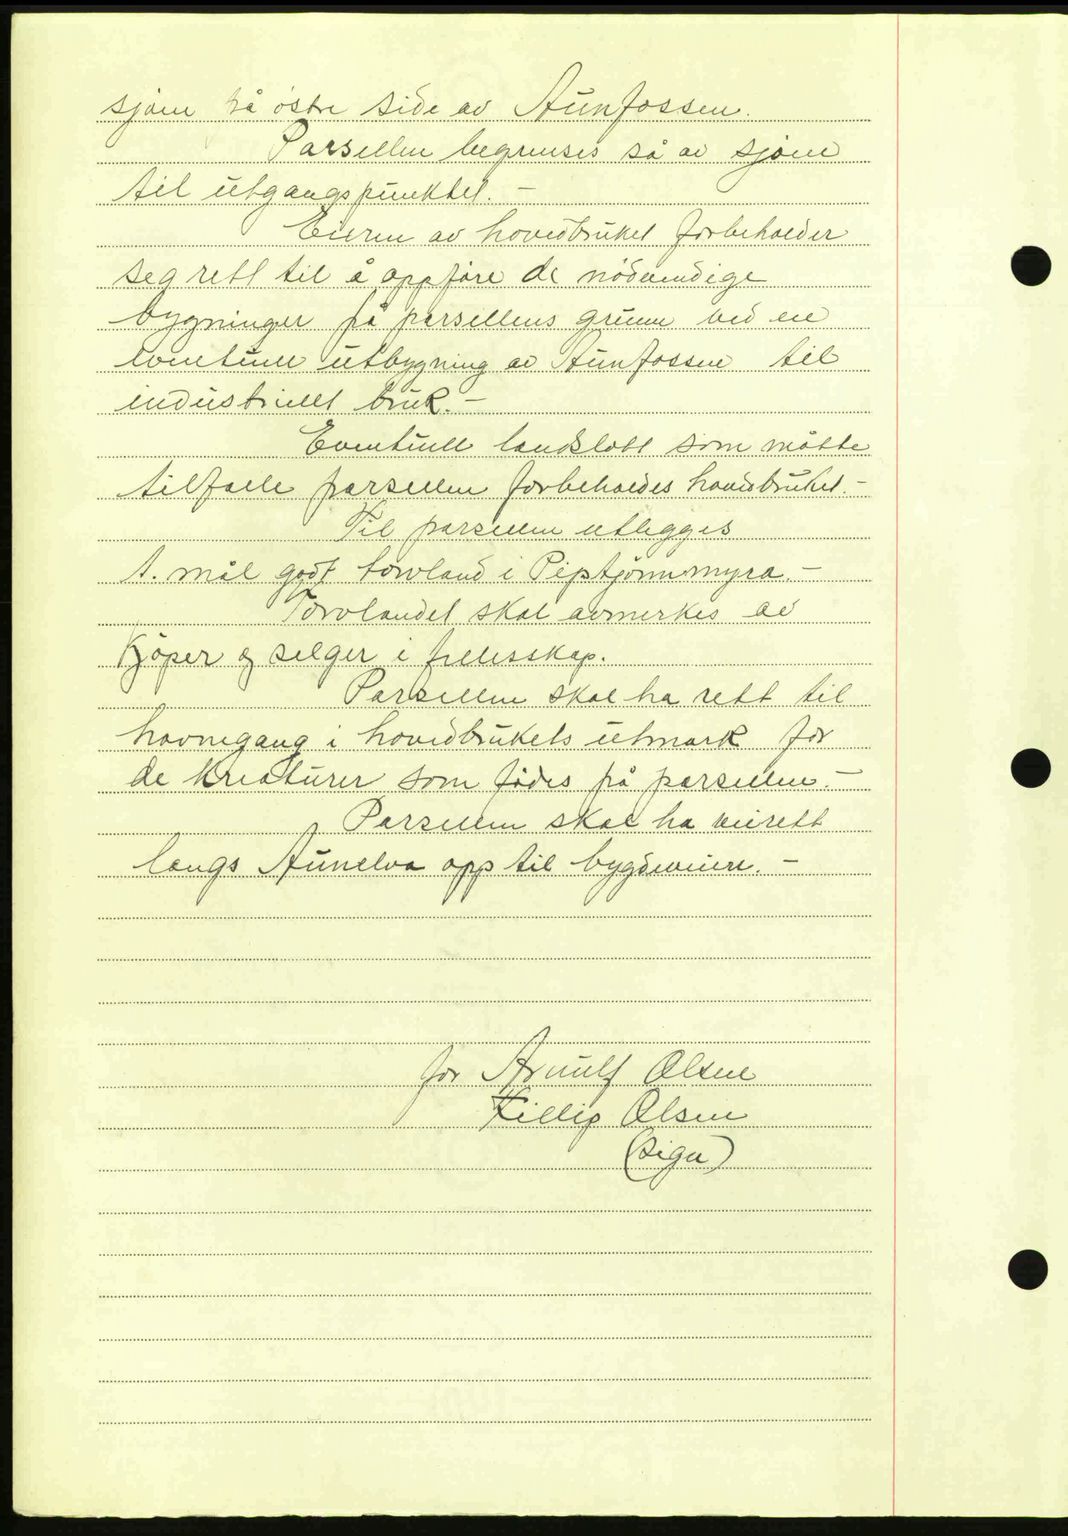 sjøen på østre side av Aunfossen.
Parsellen begrenses så av sjøen
til utgangspunktet. -
Eieren av hovedbruket forbeholder
seg rett til å oppføre de nødvendige
bygninger på parsellens grunn ved en
eventuell utbygning av Aunfossen til
industrielt bruk. -
Eventuell landslott som måtte
tilfalle parsellen forbeholdes hovedbruket. -
Til parsellen utlegges
1. mål godt torvland i Pipstjønnmyra. -
Torvlandet skal avmerkes av
Kjøper og selger i fellesskap.
Parsellen skal ha rett til
havnegang i hovedbrukets utmark for
de kreaturer som fødes på parsellen. -
Parsellen skal ha veirett
langs Aunelva opp til bygdeveien. -
for Arnulf Olsen
Fillip Olsen
(sign)